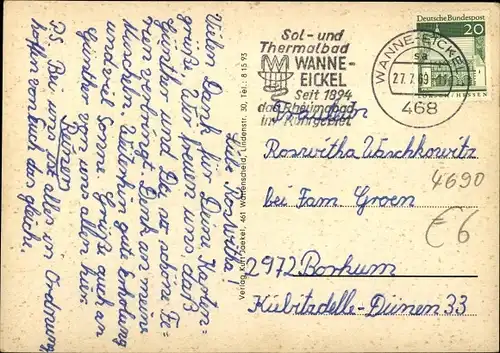 Liebe Roswitha!
Vielen Dank für Deine Karten-
grüße. Wir freuen uns, daß
Günther und Du, so schöne Fe-
rien verbringt. Denk an mein
Muscheln. Weiterhin gute Erholung
und viel Sonne. Grüße auch an
Günther von uns allen hier.
PS Bei uns ist alles in Ordnung
hoffen von Euch das gleiche.
Verlag Kurt Jaekel, 461 Wattenscheid, Lindenstr. 30, Tel.: 8 15 93
Sol- und
Thermalbad
WANNE-
EICKEL
Seit 1894
das Rheumabad
im Ruhrgebiet
WANNE-EICKEL
sa
27.7.69
468
Deutsche Bundespost
20
HESSEN
Fräulein
Roswitha Waschkowitz
bei Fam. Groen
2972 Borkum
Kiebitzdelle-Dünen 33
4690
€ 6